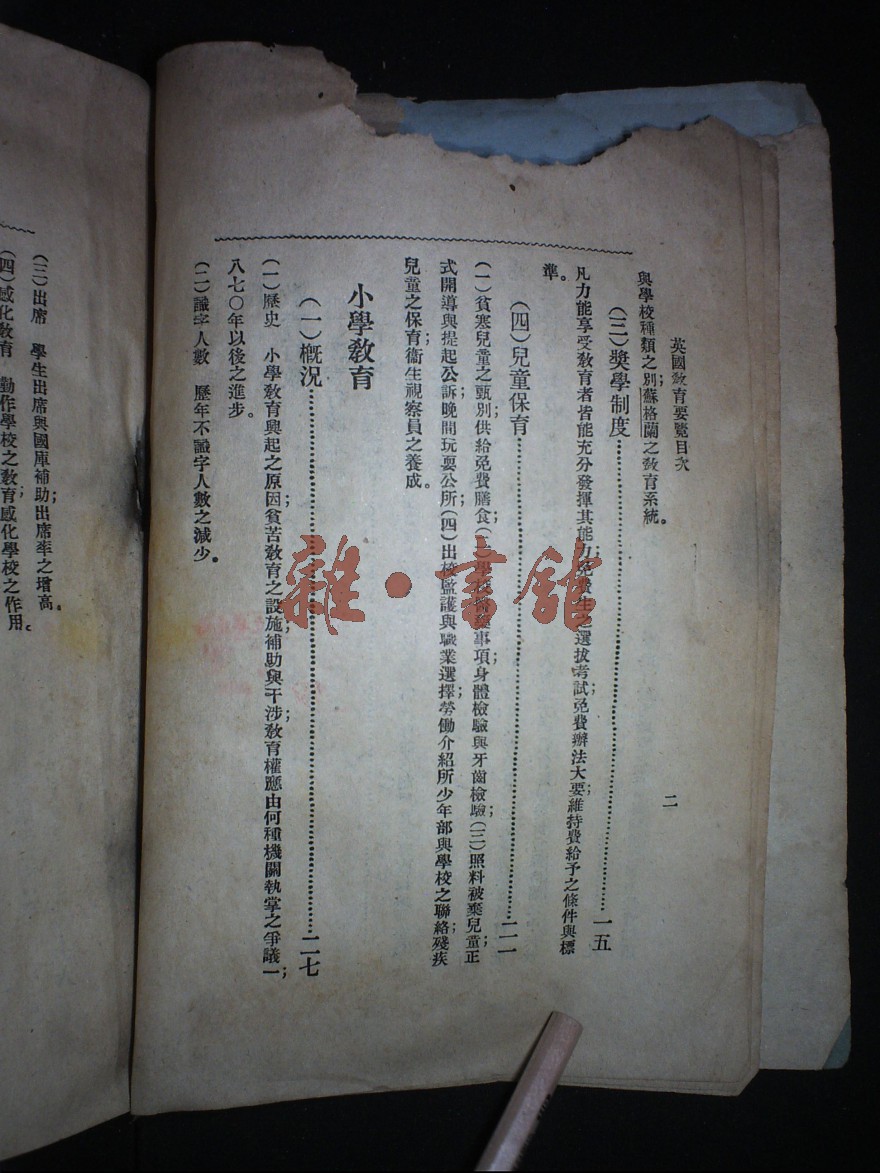 英國敎育要覽目次
二
與學校種類之別；蘇格蘭之敎育系統。
（三）獎學制度………………一五
凡力能享受敎育者皆能充分發揮其能力；免費生之選拔考試；免費辦法大要；維持費給予之條件與標
準。
（四）兒童保育………………二一
（一）貧寒兒童之甄別；供給免費膳食；（二）學校醫藥事項；身體檢驗與牙齒檢驗；（三）照料被棄兒童；正
式開導與提起公訴；晚間玩耍公所；（四）出校監護與職業選擇；勞働介紹所少年部與學校之聯絡；殘疾
兒童之保育；衞生視察員之養成。
小學敎育
（一）槪況………………二七
（一）歷史　小學敎育興起之原因；貧苦敎育之設施；補助與干涉；敎育權應由何種機關執掌之爭議；一
八七〇年以後之進步。
（二）識字人數　歷年不識字人數之減少。
（三）出席　學生出席與國庫補助；出席率之增高。
（四）感化敎育　勤作學校之敎育；感化學校之作用。
雜·書館